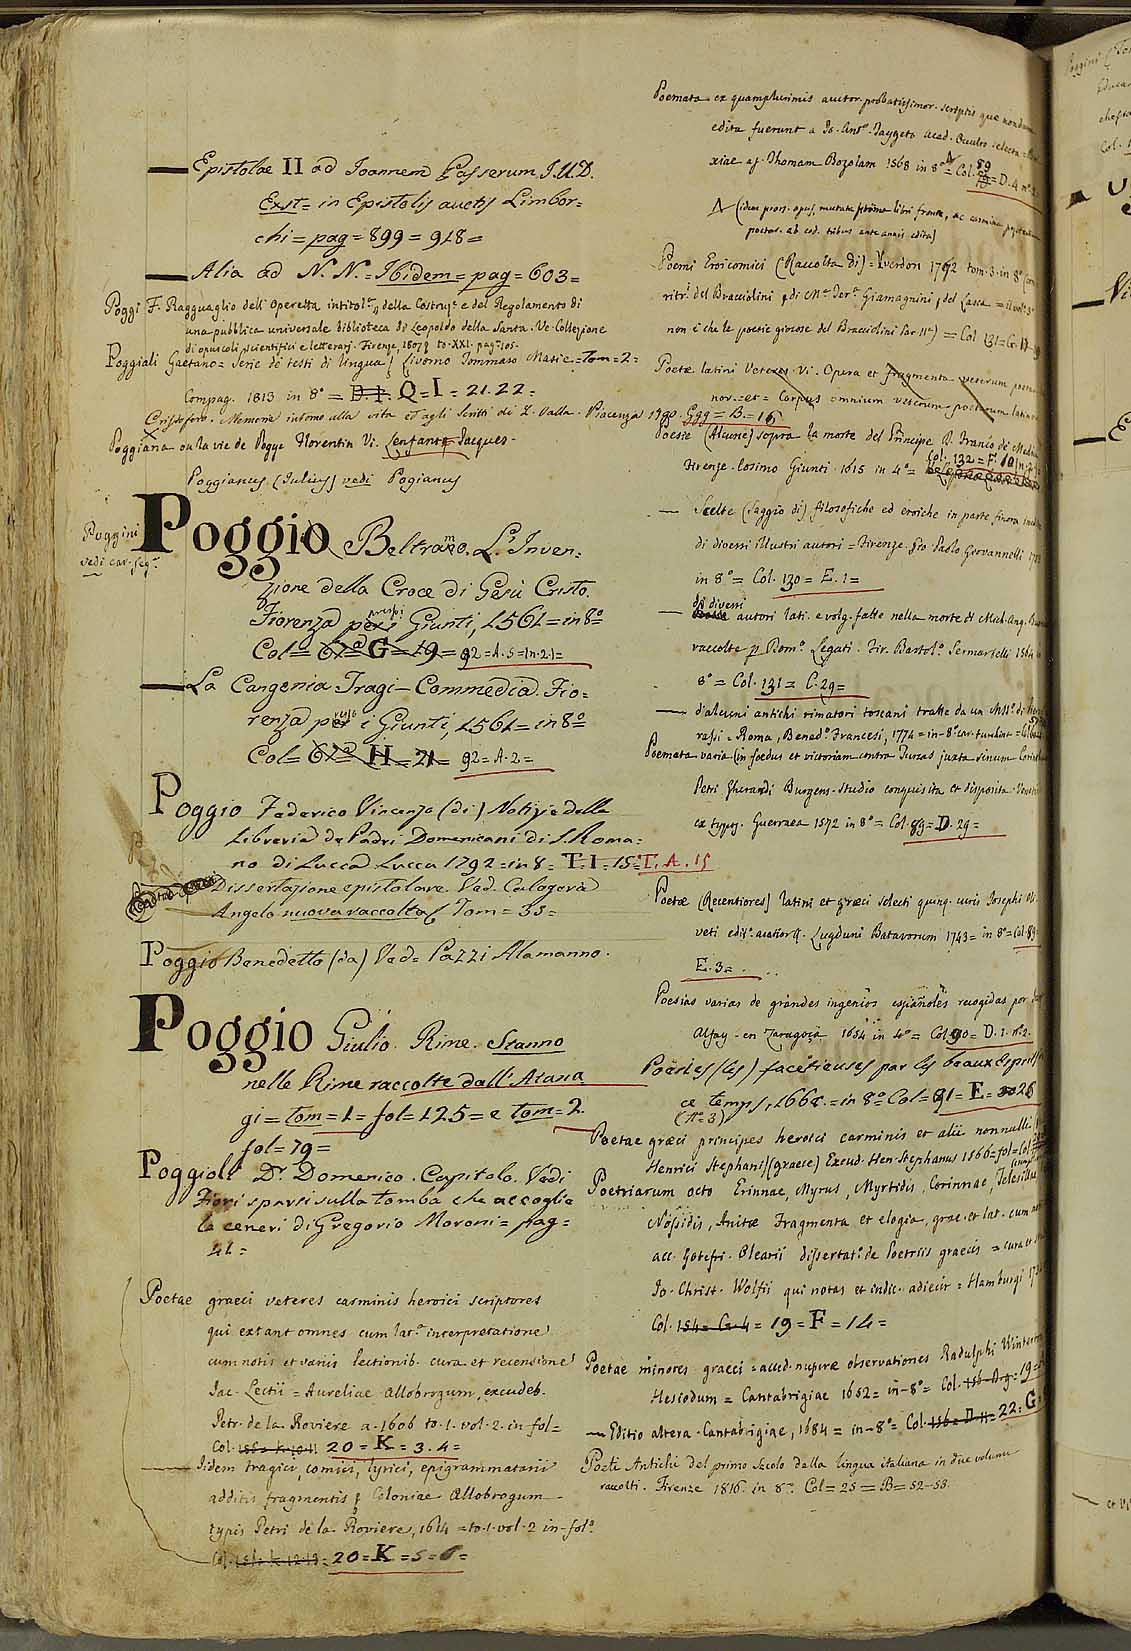 Epistolae II ad Joannem Passerum J.U.D.
Exst= in Epistolis auctis Limbor=
chi = pag = 899 = 918 =
Alia ad N. N. = Ibidem = pag = 603 =
Poggi F. Ragguaglio dell' Operetta intitol.ta della Costruz.e e del Regolamento di
una pubblica universale biblioteca di Leopoldo della Santa. Ve. Collezione
di opuscoli scientifici e letterarj. Firenze, 1807 to. XXI. pag. 105.
Poggiali Gaetano = Serie de testi di lingua Livorno Tommaso Masi e = Tom = 2 =
Compag. 1813 in 8º = D. I. Q = I = 21. 22 =
Cristoforo. Memorie intorno alla vita et agli scritti di L. Valla. Piacenza 1790. Ggg = B. = 16
Poggiana ou la vie de Pogge Florentin Vi. Lenfant Jacques.
Poggianus (Julius) vedi Pogianus
Poggini
vedi car. seg.
Poggio Beltramo. L'Inven=
zione della Croce di Gesù Cristo.
Fiorenza presso i Giunti, 1561 = in 8º
Col = 67 = G = 19 = 92 = A. 5 = In. 2. 1 =
La Cangenia Tragi-Commedia. Fio=
renza presso i Giunti, 1561 = in 8º
Col = 67 = H = 21 = 92 = A. 2 =
Poggio Federico Vincenzo (di) Notizie della
Libreria de Padri Domenicani di S. Roma=
no di Lucca Lucca 1792 = in 8 = T. I = 15 = T. A. 15
Dissertazione epistolare. Ved. Calogerà
Angelo nuova raccolta Tom = 33 =
Poggio Benedetto (da) Ved = Pazzi Alamanno.
Poggio Giulio. Rime. Stanno
nelle Rime raccolte dall' Atana
gi = tom = 1 = fol = 125 = e tom = 2.
fol = 79 =
Poggioli Dr. Domenico. Capitolo. Vedi
Fiori sparsi sulla tomba che accoglie
le ceneri di Gregorio Moroni = pag =
41 =
Poetae graeci veteres carminis heroici scriptores
qui extant omnes cum lat.a interpretatione
cum notis et variis lectionib. cura et recensione
Jac. Lectii = Aureliae Allobrogum, excudeb.
Petr. de la Roviere a. 1606 to. 1. vol. 2. in fol =
Col. 20 = K = 3. 4 =
Iidem tragici, comici, lyrici, epigrammatarii
additis fragmentis Coloniae Allobrogum
typis Petri de la Roviere, 1614 = to. 1. vol. 2 in-fol.
Col. 20 = K = 5 = 6 =
Poemata ex quamplurimis auctor. probatissimor. scriptis que nondum
edita fuerunt a Jo. Ant. Taygeto Acad. Occulto electa =
xiae ap. Thomam Bozolam 1568 in 8º = Col. 89 = D. 4
(idem prors. opus, mutata libri fronte, ac carmina
poetar. ab eod. tribus ante annis edita)
Poemi Eroicomici (Raccolta di) = Yverdon 1762 tom. 3. in 8º
ritr. del Bracciolini, di Giamagnini, del Lasca =
non è che le poesie giocose del Bracciolini) = Col 131 = G.
Poetæ latini Veteres Vi. Opera et fragmenta veterum
nor. = et = Corpus omnium veterum poetarum
Poesie (Alcune) sopra la morte del Principe D. Franc.o de Medici
Firenze. Cosimo Giunti. 1615 in 4º = Col. 132 = F. 10
— Scelte (Saggio di) filosofiche ed eroiche in parte finora
di diversi illustri autori = Firenze. Gio Paolo Giovannelli
in 8º = Col. 130 = E. 1 =
— di diversi autori lati. e volg. fatte nella morte di Mich. Ang.
raccolte p Dom.o Legati. Fir. Bartol.o Sermartelli 1564
8º = Col. 131 = C. 29 =
— d'alcuni antichi rimatori toscani tratte da un MS. di
rassi = Roma, Bened.o Francesi, 1774 = in-8º
Poemata varia (in foedus et victoriam contra Turcas juxta sinum
Petri Gherardi Burgens. studio conquisita et disposita
ex typog. Guerraea 1572 in 8º = Col. 89 = D. 29 =
Poetæ (Recentiores) latini et græci selecti quinq. curis Josephi
veti edit. auctior. Lugduni Batavorum 1743 = in 8º = Col. 89
E. 3 =
Poesias varias de grandes ingenios españoles recogidas por
Alfay. en Zaragoça 1654 in 4º = Col. 90 = D. 1. nº 2.
Poësies (les) facétieuses par les beaux Esprits
ce temps, 166 = in 8º Col = 91 = E = 26
(nº 3)
Poetae græci principes heroici carminis et alii nonnulli
Henrici Stephani (graece) Excud. Hen. Stephanus 1566 = fol = Col
Poetriarum octo Erinnae, Myrus, Myrtidis, Corinnae, Telesillae
Nossidis, Anitæ Fragmenta et elogia, græc. et lat. cum
acc. Gotefri. Olearii dissertat. de Poetriis graecis = cura et
Jo. Christ. Wolfii qui notas et indic. adiecit = Hamburgi
Col. 154 = G. 4 = 19 = F = 14 =
Poetae minores graeci = acced. nuperæ observationes Radulphi
Hesiodum = Cantabrigiae 1652 = in-8º = Col. = 19 =
— Editio altera. Cantabrigiae, 1684 = in-8º = Col. 156 = D. 11 = 22 = G
Poeti Antichi del primo Secolo della lingua italiana in due volumi
raccolti. Firenze 1816. in 8º. Col = 25 = B = 52-53.